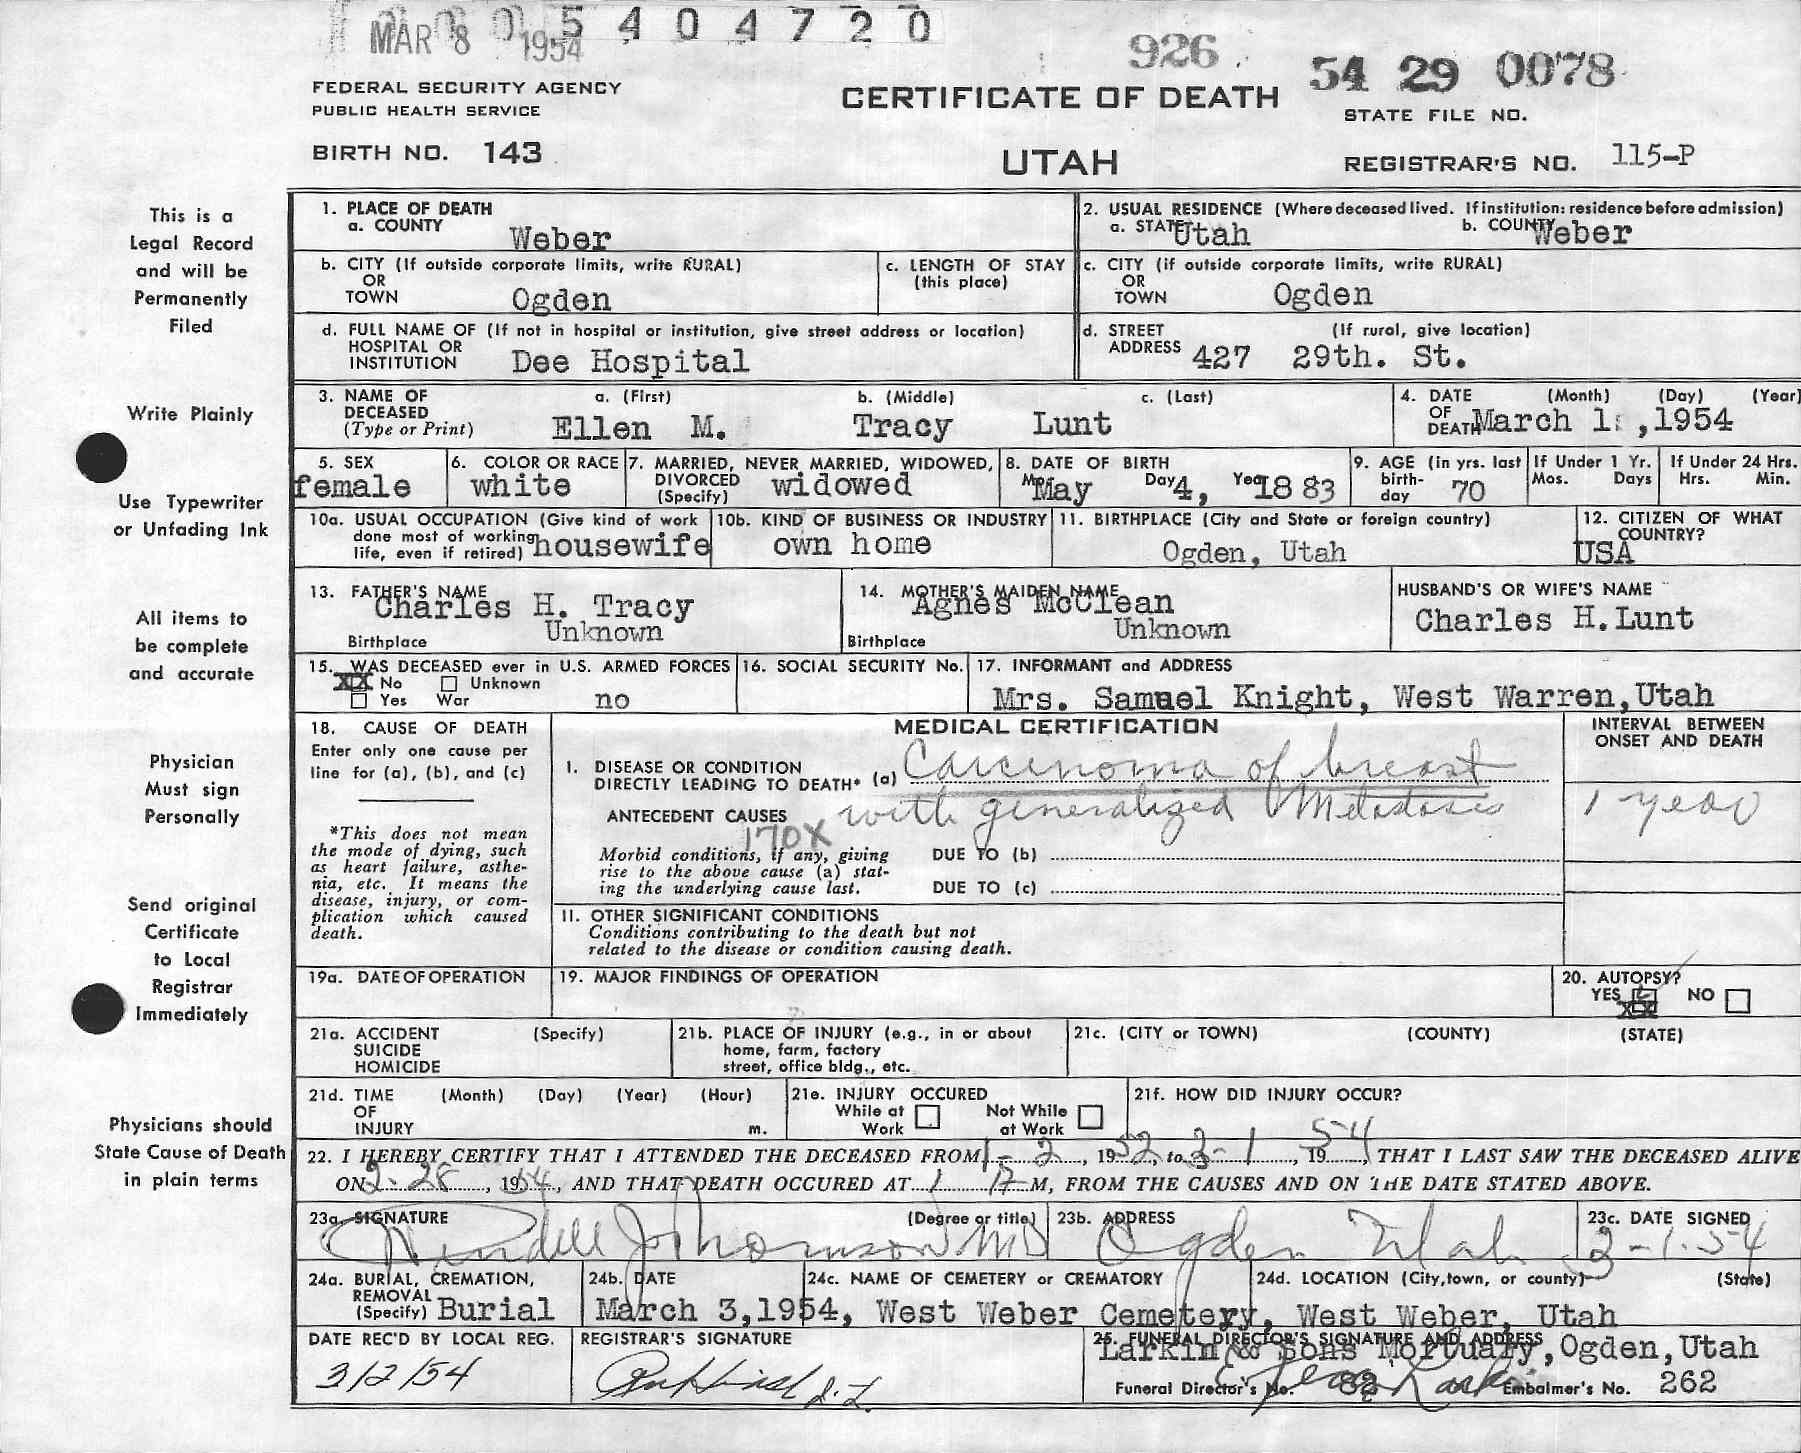 MAR 8 1954 5 4 0 4 7 2 0
926
54 29 0078
FEDERAL SECURITY AGENCY
PUBLIC HEALTH SERVICE
CERTIFICATE OF DEATH
STATE FILE NO.
BIRTH NO. 143
UTAH
REGISTRAR'S NO. 115-P
This is a
Legal Record
and will be
Permanently
Filed
Write Plainly
Use Typewriter
or Unfading Ink
All items to
be complete
and accurate
Physician
Must sign
Personally
Send original
Certificate
to Local
Registrar
Immediately
Physicians should
State Cause of Death
in plain terms
1. PLACE OF DEATH
a. COUNTY Weber
2. USUAL RESIDENCE (Where deceased lived. If institution: residence before admission)
a. STATE Utah b. COUNTY Weber
b. CITY (If outside corporate limits, write RURAL)
OR
TOWN Ogden
c. LENGTH OF STAY
(this place)
c. CITY (if outside corporate limits, write RURAL)
OR
TOWN Ogden
d. FULL NAME OF (If not in hospital or institution, give street address or location)
HOSPITAL OR
INSTITUTION Dee Hospital
d. STREET (If rural, give location)
ADDRESS 427 29th. St.
3. NAME OF a. (First) b. (Middle) c. (Last)
DECEASED
(Type or Print) Ellen M. Tracy Lunt
4. DATE (Month) (Day) (Year)
OF
DEATH March 1 ,1954
5. SEX
female
6. COLOR OR RACE
white
7. MARRIED, NEVER MARRIED, WIDOWED,
DIVORCED
(Specify) widowed
8. DATE OF BIRTH
May Day 4, Year 1883
9. AGE (in yrs. last
birth-
day 70
If Under 1 Yr.
Mos. Days
If Under 24 Hrs.
Hrs. Min.
10a. USUAL OCCUPATION (Give kind of work
done most of working
life, even if retired) housewife
10b. KIND OF BUSINESS OR INDUSTRY
own home
11. BIRTHPLACE (City and State or foreign country)
Ogden, Utah
12. CITIZEN OF WHAT
COUNTRY?
USA
13. FATHER'S NAME
Charles H. Tracy
Birthplace Unknown
14. MOTHER'S MAIDEN NAME
Agnes McClean
Birthplace Unknown
HUSBAND'S OR WIFE'S NAME
Charles H. Lunt
15. WAS DECEASED ever in U.S. ARMED FORCES
XX No Unknown
Yes War no
16. SOCIAL SECURITY No.
17. INFORMANT and ADDRESS
Mrs. Samuel Knight, West Warren, Utah
18. CAUSE OF DEATH
Enter only one cause per
line for (a), (b), and (c)
*This does not mean
the mode of dying, such
as heart failure, asthe-
nia, etc. It means the
disease, injury, or com-
plication which caused
death.
MEDICAL CERTIFICATION
INTERVAL BETWEEN
ONSET AND DEATH
I. DISEASE OR CONDITION
DIRECTLY LEADING TO DEATH* (a) Carcinoma of breast
ANTECEDENT CAUSES with generalized Metastasis 1 year
170X
Morbid conditions, if any, giving
rise to the above cause (a) stat-
ing the underlying cause last.
DUE TO (b)
DUE TO (c)
II. OTHER SIGNIFICANT CONDITIONS
Conditions contributing to the death but not
related to the disease or condition causing death.
19a. DATE OF OPERATION
19. MAJOR FINDINGS OF OPERATION
20. AUTOPSY?
YES NO
21a. ACCIDENT (Specify)
SUICIDE
HOMICIDE
21b. PLACE OF INJURY (e.g., in or about
home, farm, factory
street, office bldg., etc.
21c. (CITY or TOWN) (COUNTY) (STATE)
21d. TIME (Month) (Day) (Year) (Hour)
OF
INJURY m.
21e. INJURY OCCURED
While at Work
Not While at Work
21f. HOW DID INJURY OCCUR?
22. I HEREBY CERTIFY THAT I ATTENDED THE DECEASED FROM 1-2, 1952, to 3-1, 1954, THAT I LAST SAW THE DECEASED ALIVE
ON 2-28, 1954, AND THAT DEATH OCCURED AT 1 A M, FROM THE CAUSES AND ON THE DATE STATED ABOVE.
23a. SIGNATURE (Degree or title)
Rendell J Thomson MD
23b. ADDRESS
Ogden Utah
23c. DATE SIGNED
3-1-54
24a. BURIAL, CREMATION,
REMOVAL
(Specify) Burial
24b. DATE
March 3,1954,
24c. NAME OF CEMETERY or CREMATORY
West Weber Cemetery,
24d. LOCATION (City, town, or county) (State)
West Weber, Utah
DATE REC'D BY LOCAL REG.
3/2/54
REGISTRAR'S SIGNATURE
25. FUNERAL DIRECTOR'S SIGNATURE AND ADDRESS
Larkin & Sons Mortuary, Ogden, Utah
Funeral Director's No. 82 Embalmer's No. 262